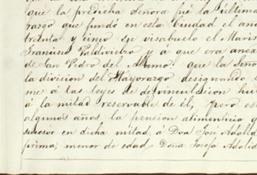 que la predicha Señora fué la última
razgo que fundó en esta Ciudad el año
treinta y cinco, su visabuelo el Maris
Francisco Valdivieso y á que era anexo
de San Pedro del Álamo: que la Seño
la division del Mayorazgo designando e
me á las leyes de desvinculacion hizo
á la mitad reservable de él, pero es
algunos años, la pension alimenticia q
sucesor en dicha mitad, á Don José Adalid
prima menor de edad, Doña Josefa Adalid